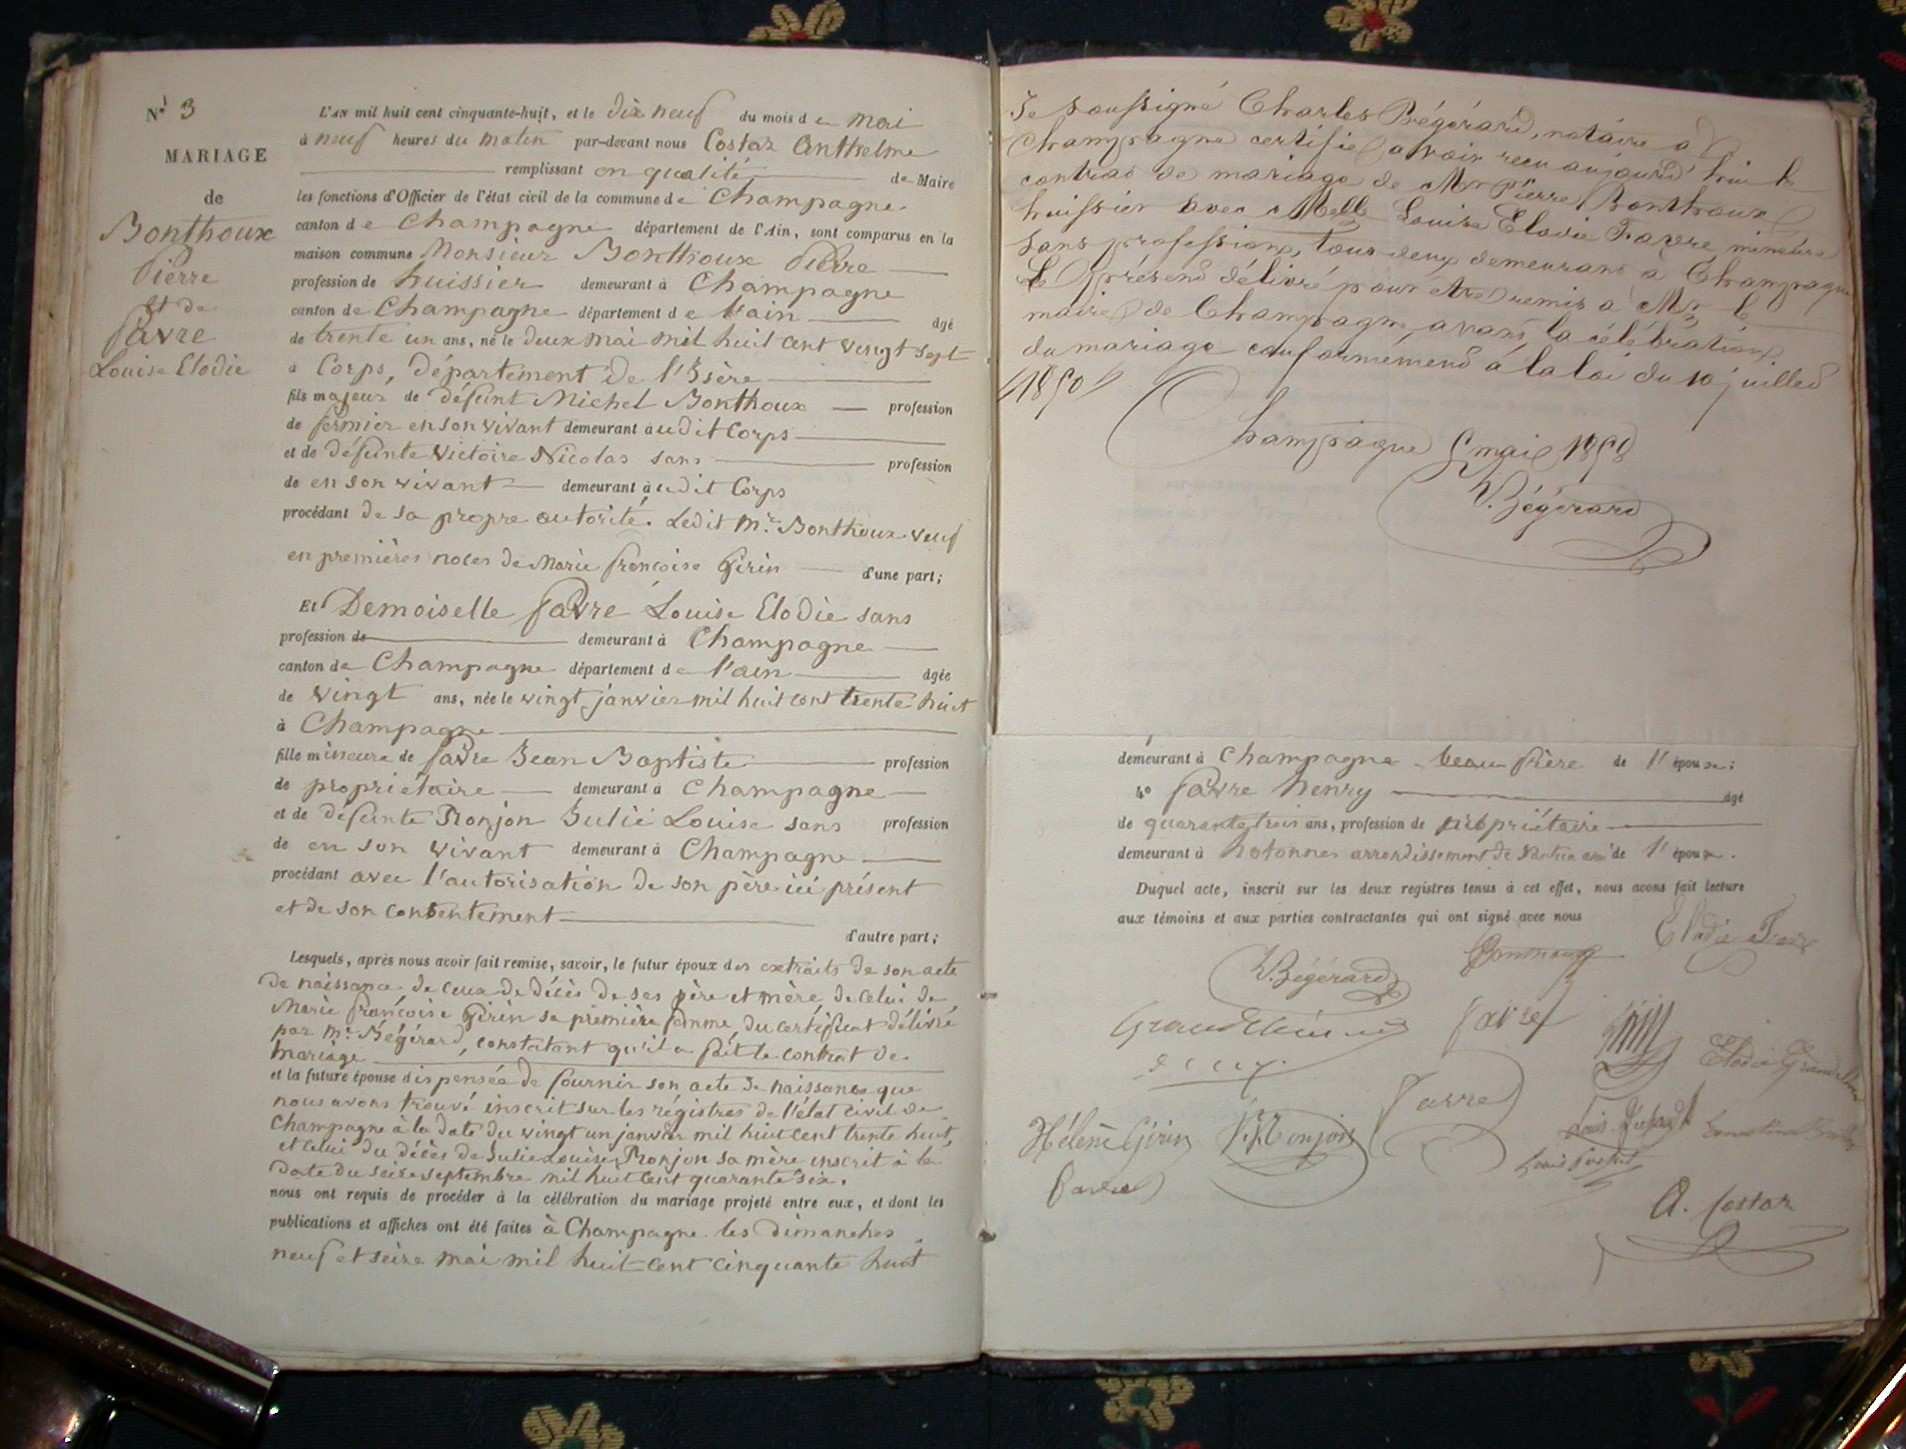 N.º 3
MARIAGE
de
Bonthoux
Pierre
et de
favre
Louise Elodie
L'AN mil huit cent cinquante-huit, et le dix neuf du mois de mai
à neuf heures du matin par-devant nous Costaz Anthelme
remplissant en qualité de Maire
les fonctions d'Officier de l'état civil de la commune de Champagne
canton de Champagne département de l'Ain, sont comparus en la
maison commune Monsieur Bonthoux Pierre
profession de huissier demeurant à Champagne
canton de Champagne département de l'ain âgé
de trente un ans, né le deux mai mil huit cent vingt sept
à Corps, département de l'Isère
fils majeur de défunt Michel Bonthoux profession
de fermier en son vivant demeurant audit Corps
et de défunte Victoire Nicolas sans profession
de en son vivant demeurant audit Corps
procédant de sa propre autorité. Ledit Mr. Bonthoux veuf
en premières noces de Marie françoise Girin d'une part;
Et Demoiselle favre Louise Elodie sans
profession de demeurant à Champagne
canton de Champagne département de l'ain âgée
de vingt ans, née le vingt janvier mil huit cent trente huit
à Champagne
fille mineure de favre Jean Baptiste profession
de propriétaire demeurant à Champagne
et de défunte Monjon Julie Louise sans profession
de en son vivant demeurant à Champagne
procédant avec l'autorisation de son père ici présent
et de son consentement
d'autre part;
Lesquels, après nous avoir fait remise, savoir, le futur époux des extraits de son acte
de naissance de ceux de décès de ses père et mère, de celui de
Marie françoise Girin sa première femme, du certificat délivré
par Mr. Bégérard, constatant qu'il a fait le contrat de
mariage
et la future épouse dispensée de fournir son acte de naissance que
nous avons trouvé inscrit sur les régistres de l'état civil de
Champagne à la date du vingt un janvier mil huit cent trente huit,
et celui du décès de Julie Louise Monjon sa mère inscrit à la
date du seize septembre mil huit cent quarante six.
nous ont requis de procéder à la célébration du mariage projeté entre eux, et dont les
publications et affiches ont été faites à Champagne les dimanches
neuf et seize mai mil huit cent cinquante huit
Je soussigné Charles Bégérard, notaire à
Champagne certifie avoir reçu aujourd'hui le
contrat de mariage de Mr Pierre Bonthoux
huissier avec Melle Louise Elodie Favre, mineure
sans profession, tous deux demeurant à Champagne
Le présent délivré pour être remis à Mr le
maire de Champagne, avant la célébration
du mariage conformément à la loi du 10 juillet
1850
Champagne 5 mai 1858
Bégérard
demeurant à Champagne beau frère de l'épouse;
4º favre henry âgé
de quarante trois ans, profession de propriétaire
demeurant à hotonnes arrondissement de Nantua ami de l'époux.
Duquel acte, inscrit sur les deux registres tenus à cet effet, nous avons fait lecture
aux témoins et aux parties contractantes qui ont signé avec nous
Elodie Favre
Bonthoux
Bégérard
favre
Favre
Hélène Girin
Monjon
Favre
A. Costaz